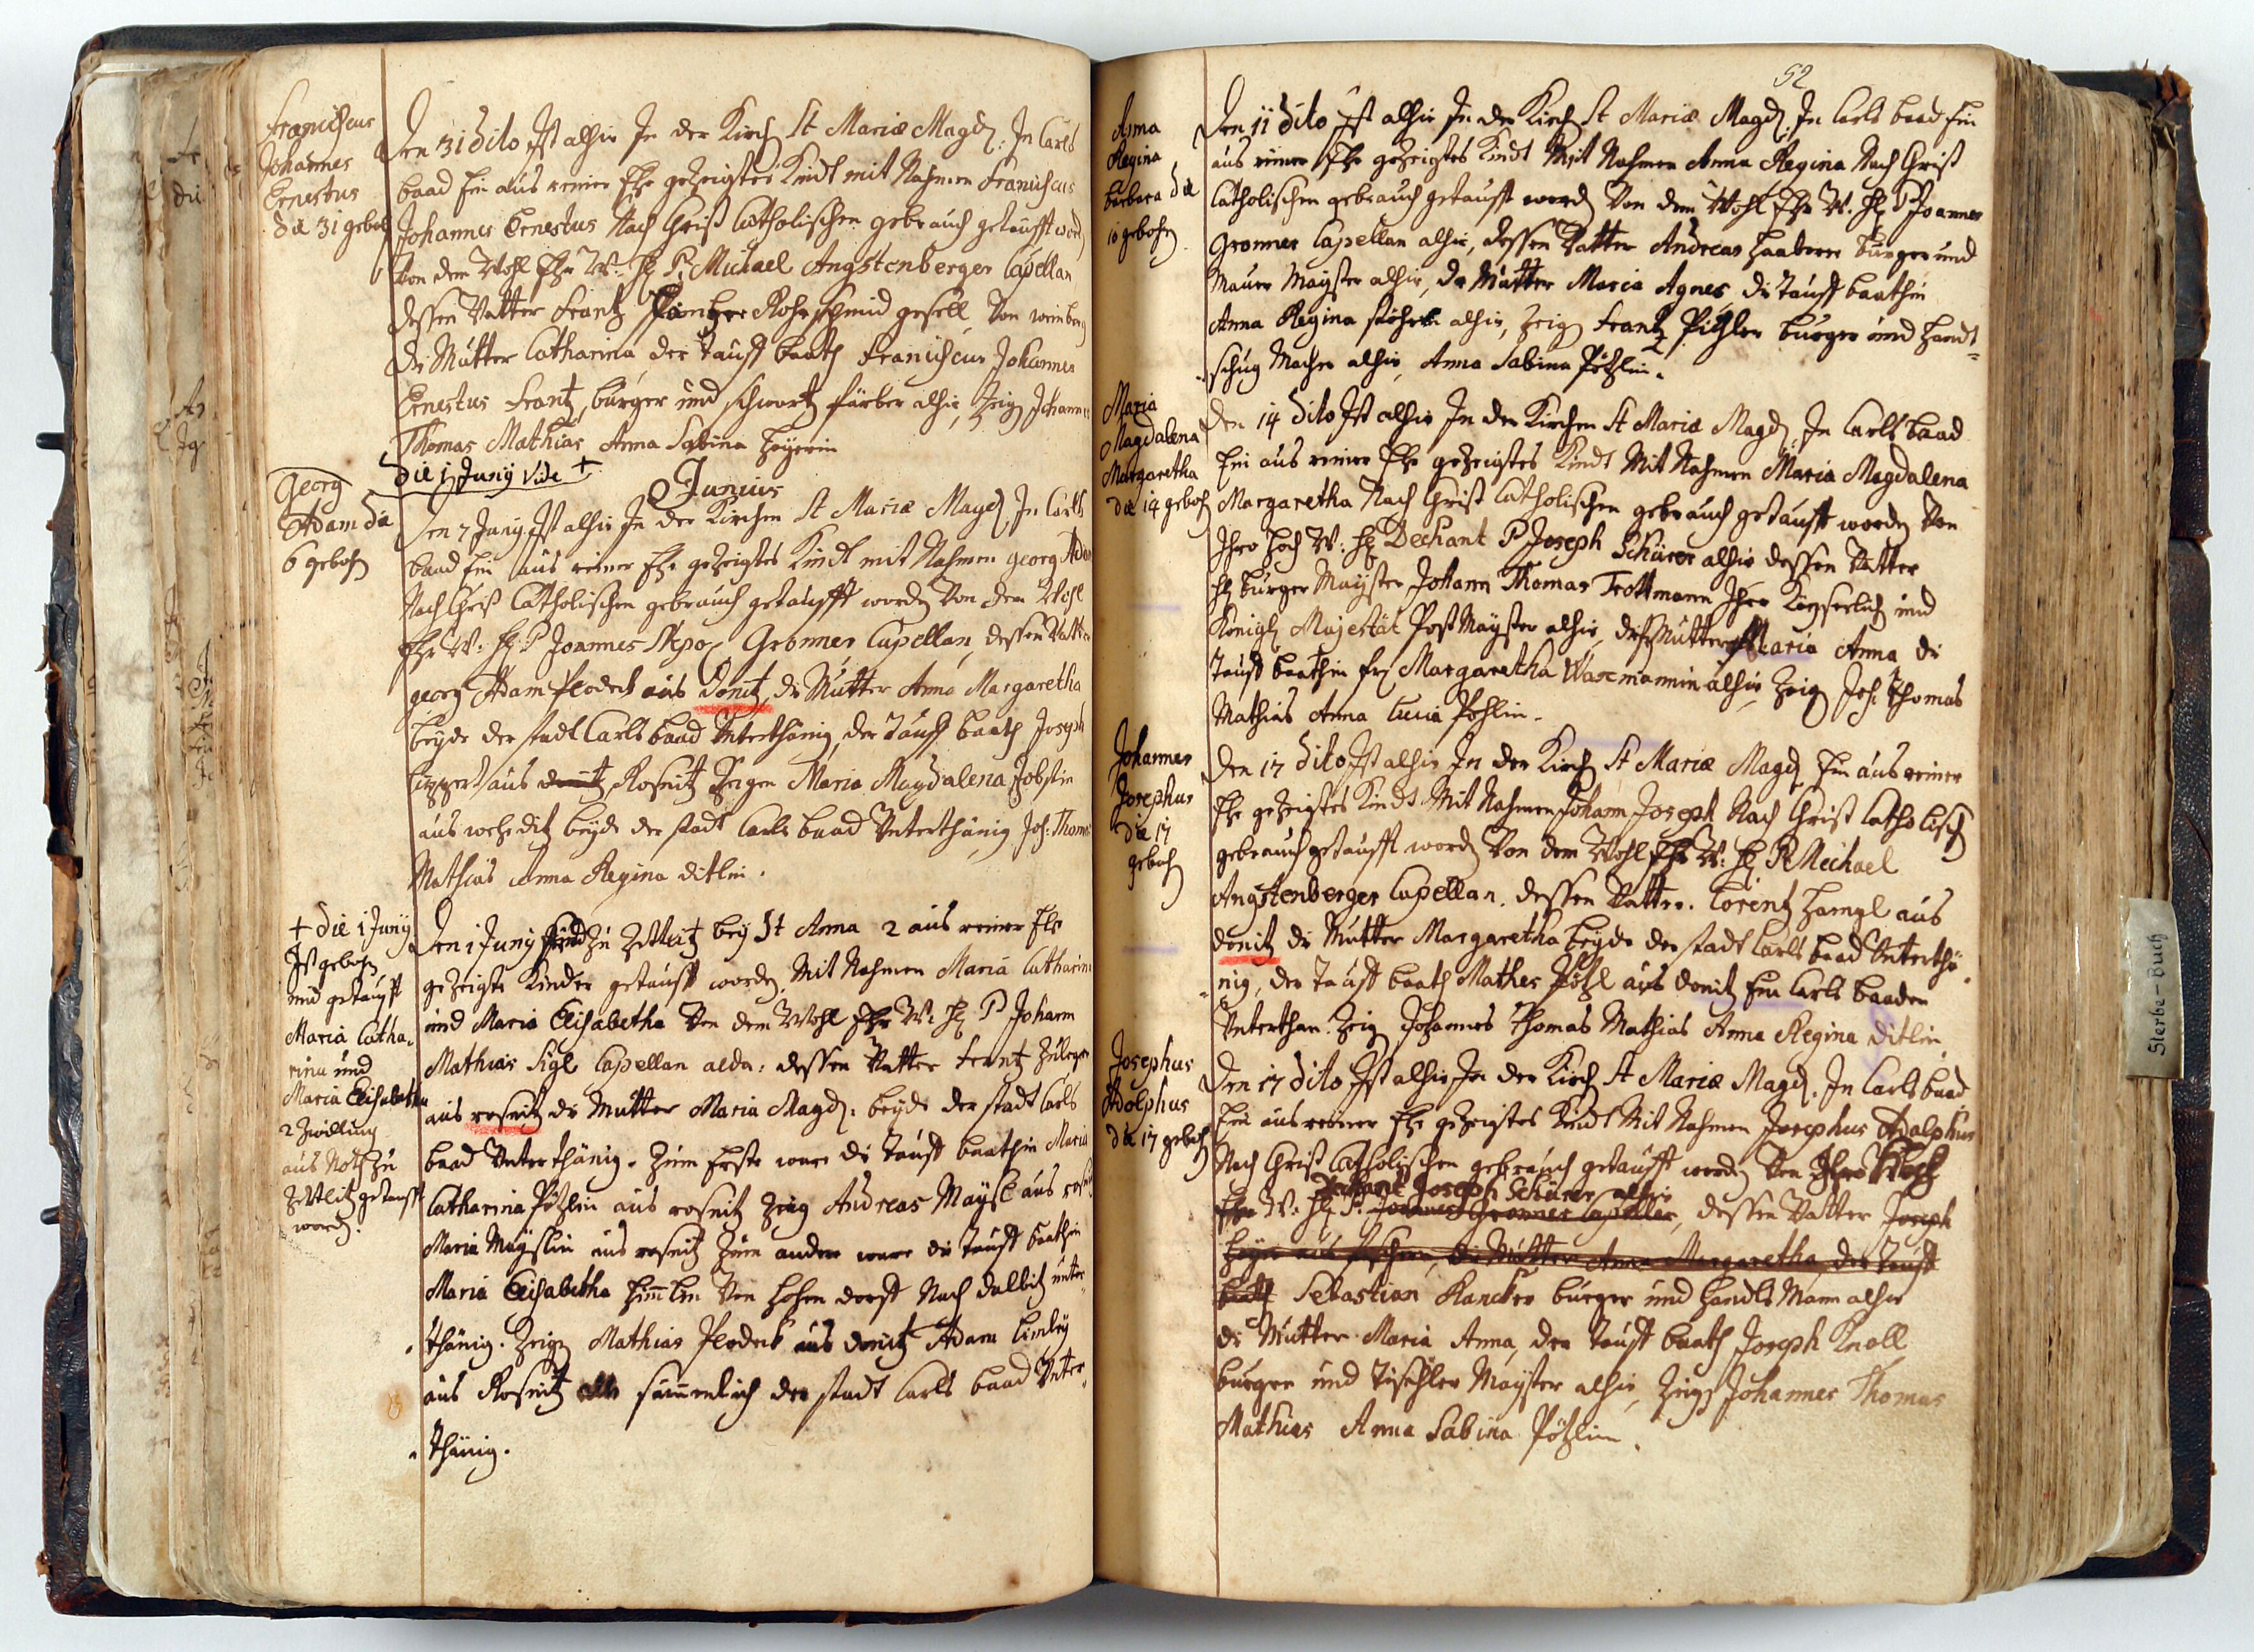 Franciscus
Johannes
Ernestus
die 31 geboh
Den 31 dito Ist alhie In der Kirch St Mariæ Magd: In Carls
baad Ein aus reiner Ehe gezeigtes Kindt mit Nahmen Franciscus
Johannes Ernestus Nach Christ Catholischen gebrauch getaufft word
von dem Wohl Ehr W: H: P: Michael Angstenberger Capellan
dessen Vatter Frantz Rohrschmid gesell, von
die Mutter Catharina, der Tauff baath Franciscus Johannes
Ernestus Frantz, burger und schwartz färber alhie, Zeig Johannes
Thomas Mathias Anna Sabina
die 1 Juny Vide +
Junius
Georg
Adam die
6 geboh
Den 7 Juny Ist alhie In der Kirchen St Mariæ Magd, In Carls
baad Ein aus reiner Ehe gezeigtes Kindt mit Nahmen georg Adam
Nach Christ Catholischen gebrauch getaufft word von dem Wohl
Ehr W: H: P Joannes Nepo: Gronner Capellan, dessen Vatter
georg Adam Plodeck aus donitz, die Mutter Anna Margaretha
beyde der stadt Carls baad Unterthänig, der Tauff baath Joseph
Lippert aus donitz Rosnitz Zeigen Maria Magdalena Jobstin
aus wehe ditz beyde der stadt Carls baad Unterthänig, Joh: Thomas
Mathias Anna Regina ditlin.
+ die 1 Juny
Ist geboh
und getaufft
Maria Catha-
rina und
Maria Elisabetha
2 Zwilling
aus Noth zu
Zettlitz getaufft
word.
Den 1 Juny sind zu Zettlitz bey St Anna 2 aus reiner Ehe
gezeigte Kinder getaufft word, Mit Nahmen Maria Catharina
und Maria Elisabetha von dem Wohl Ehr W: H: P Johann
Mathias Sigl Capellan alda: dessen Vatter Frantz
aus rosnitz die Mutter Maria Magd: beyde der stadt Carls
baad Unterthänig. Zum Erste ware die Tauff baathin Maria
Catharina Pötzlin aus rosnitz Zeug Andreas Maysl aus
Maria Mayslin aus rosnitz Zum andern ware die Tauff baathin
Maria Elisabetha von Hohen dorff Nach dallwitz unter-
thänig. Zeig Mathias Plodeck aus donitz Adam
aus Rosnitz alle sämmentlich der stadt Carls baad Unter-
thänig.
52
Anna
Regina
barbara die
10 geboh
Den 11 dito Ist alhie In der Kirch St Mariæ Magd, In Carls baad Ein
aus reiner Ehe gezeigtes Kindt Mit Nahmen Anna Regina Nach Christ
Catholischen gebrauch getaufft word von dem Wohl Ehr W. H: P Joannes
Gronner Capellan alhie, dessen Vatter Andreas burger und
Maurer Mayster alhie, die Mutter Maria Agnes, die Tauff baathin
Anna Regina alhie, Zeig Frantz Pichler burger und Handt-
schug Macher alhie, Anna Sabina Pötzlin.
Maria
Magdalena
Margaretha
die 14 geboh
Den 14 dito Ist alhie In der Kirchen St Mariæ Magd, In Carls baad
Ein aus reiner Ehe gezeigtes Kindt Mit Nahmen Maria Magdalena
Margaretha Nach Christ Catholischen gebrauch getaufft worden von
Ihro Hoch W: H: Dechant P Joseph Schürer alhie dessen Vatter
H: burger Mayster Johann Thomas Trottmann Ihro Kayserlich und
Königl Majestät Post Mayster alhie, die Mutter Maria Anna die
Tauff baathin Fr: Margaretha Wasemannin alhie, Zeig Joh: Thomas
Mathias Anna Lucia
Johannes
Josephus
die 17
geboh
Den 17 dito Ist alhie In der Kirch St Mariæ Magd, Ein aus reiner
Ehe gezeigtes Kindt Mit Nahmen Johann Joseph Nach Christ Catholisch
gebrauch getaufft word von dem Wohl Ehr W: H: P Michael
Angstenberger Capellan. dessen Vatter. Lorentz aus
donitz die Mutter Margaretha beyde der stadt Carls baad Unterthä-
nig, der Tauff baath Mathes Pötzl aus donitz Ein Carls baader
Unterthan. Zeig Johannes Thomas Mathias Anna Regina ditlin
Josephus
Adolphus
die 17 geboh
Den 17 dito Ist alhie In der Kirch St Mariæ Magd, In Carls baad
Ein aus reiner Ehe gezeigtes Kindt Mit Nahmen Josephus Adolphus
Nach Christ Catholischen gebrauch getaufft word von Ihro Hoch
Dechant Joseph Schürer alhie
Ehr W: H: P: Joannes Gronner Capellan, dessen Vatter Joseph
die Mutter Anna Margaretha, der Tauff
baath Sebastian burger und Handls Mann alhie
die Mutter Maria Anna, der Tauff baath Joseph Knoll
burger und Tischler Mayster alhie, Zeig Johannes Thomas
Mathias Anna Sabina Pötzlin.
Sterbe-Buch